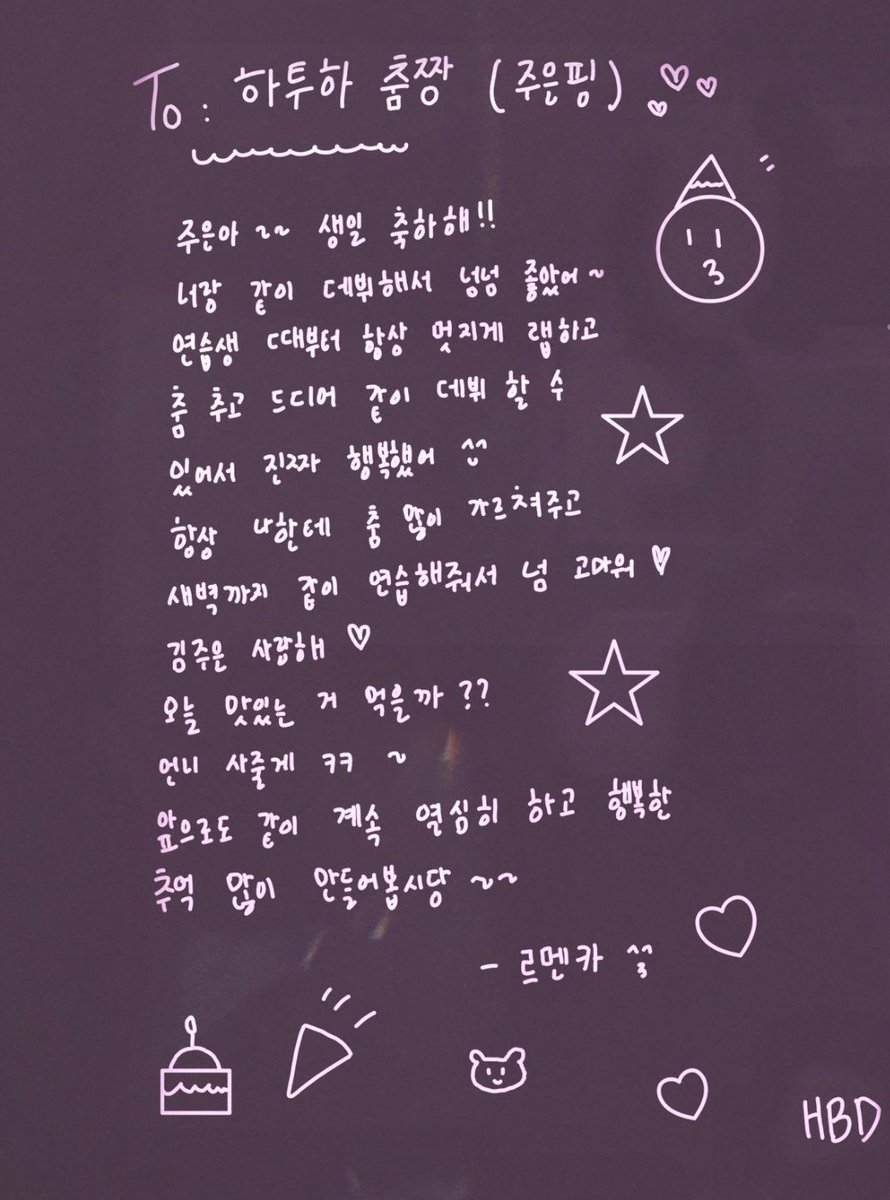 To : 하투하 춤짱 (주은핑) ♡♡♡
주은아 ~~ 생일 축하해!!
너랑 같이 데뷔해서 넘넘 좋았어~
연습생 때부터 항상 멋지게 랩하고
춤 추고 드디어 같이 데뷔 할 수
있어서 진짜 행복했어 ^^
항상 나한테 춤 많이 가르쳐주고
새벽까지 같이 연습해줘서 넘 고마워 ♡
김주은 사랑해 ♡
오늘 맛있는 거 먹을까 ??
언니 사줄게 ㅋㅋ ~
앞으로도 같이 계속 열심히 하고 행복한
추억 많이 만들어봅시당 ~~
- 르멘카 ^3^
HBD